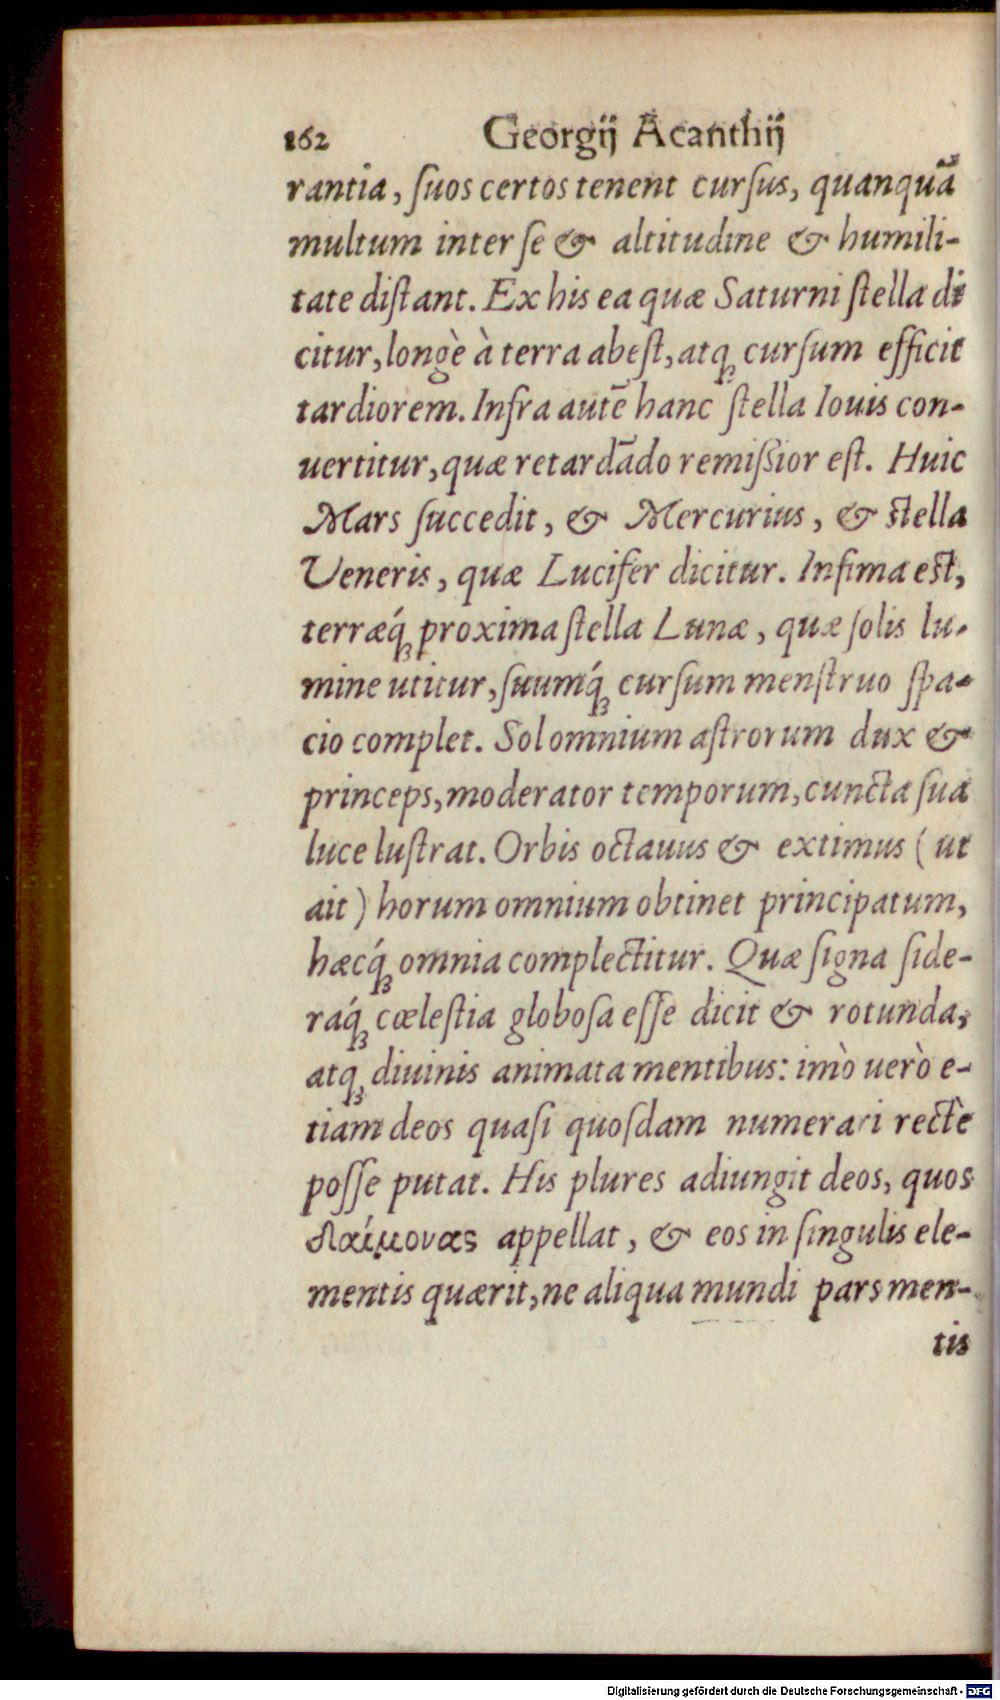 162 Georgij Acanthij
rantia, ſuos certos tenent curſus, quanquã
multum inter ſe & altitudine & humili-
tate diſtant. Ex his ea quæ Saturni ſtella di
citur, longè à terra abeſt, atq́ꝫ curſum efficit
tardiorem. Infra autẽ hanc ſtella Iouis con-
uertitur, quæ retardãdo remiſsior eſt. Huic
Mars ſuccedit, & Mercurius, & ſtella
Veneris, quæ Lucifer dicitur. Infima est,
terræq́ꝫ proxima ſtella Lunæ, quæ ſolis lu-
mine utitur, ſuumq́ꝫ curſum menſtruo ſpa-
cio complet. Sol omnium aſtrorum dux &
princeps, moderator temporum, cuncta ſua
luce luſtrat. Orbis octauus & extimus ( ut
ait ) horum omnium obtinet principatum,
hæcq́ꝫ omnia complectitur. Quæ ſigna ſide-
raq́ꝫ cœleſtia globoſa eſſe dicit & rotunda,
atqꝫ diuinis animata mentibus: imò uerò e-
tiam deos quaſi quoſdam numerari rectè
poſſe putat. His plures adiungit deos, quos
δαίμονας appellat, & eos in ſingulis ele-
mentis quærit, ne aliqua mundi pars men-
tis
Digitalisierung gefördert durch die Deutsche Forschungsgemeinschaft - DFG